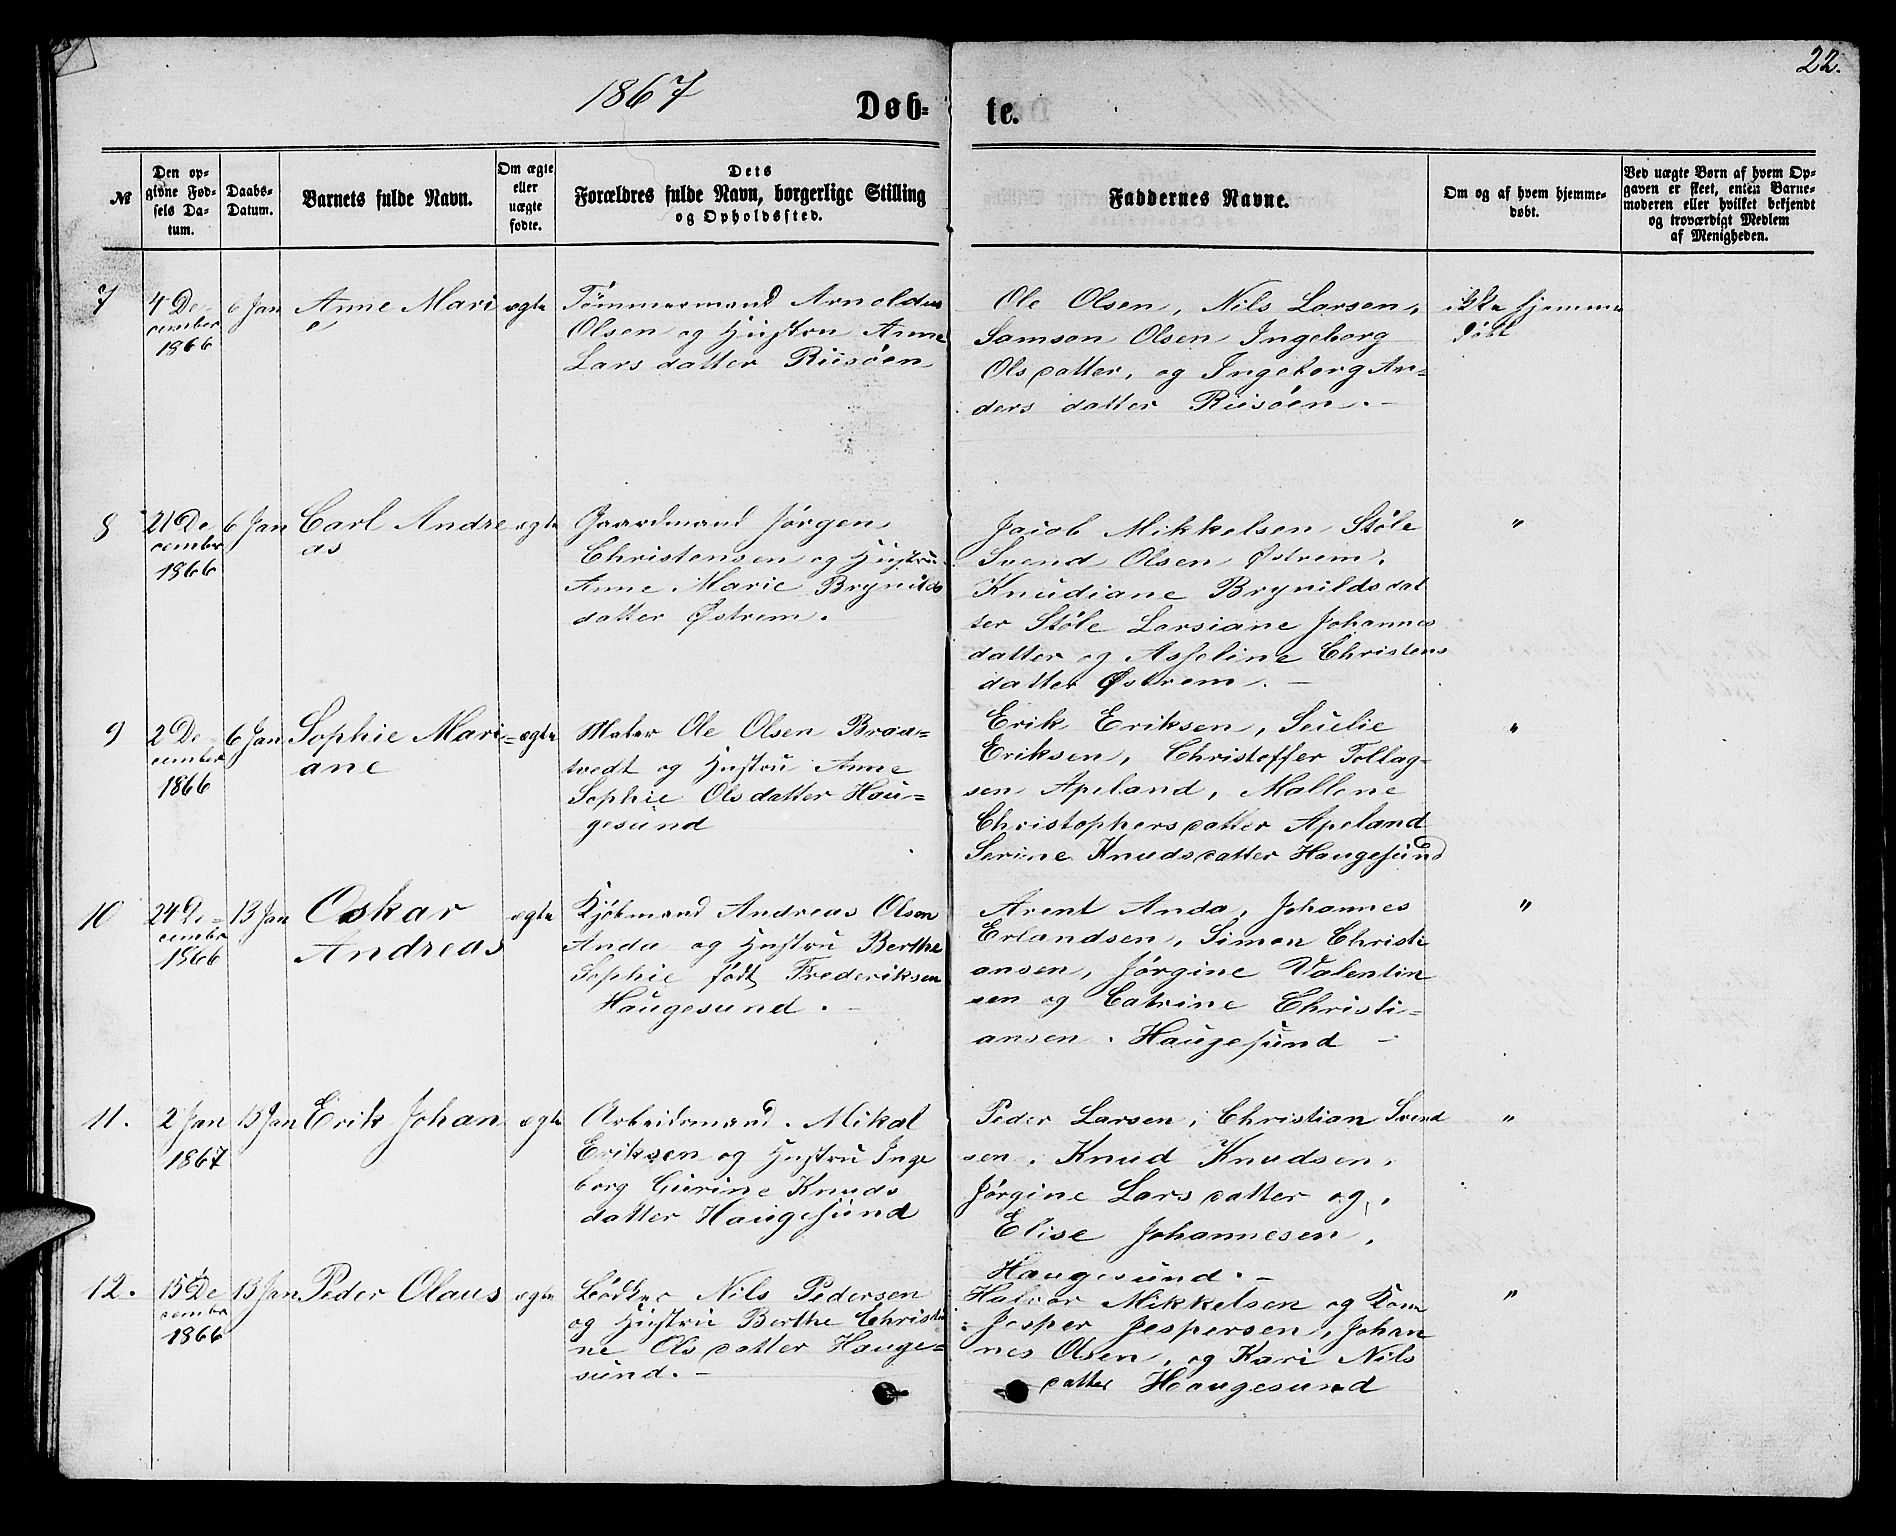 22.
1867
Døb-
te.
№
Den op-
givne Fød-
sels Da-
tum.
Daabs-
Datum.
Barnets fulde Navn.
Om ægte
eller
uægte
fødte.
Dets
Forældres fulde Navn, borgerlige Stilling
og Opholdssted.
Faddernes Navne.
Om og af hvem hjemme-
døbt.
Ved uægte Børn af hvem Op-
gaven er skeet, enten Barne-
moderen eller hvilket bekjendt
og troværdigt Medlem
af Menigheden.
7
4 De-
cember
1866
6 Jan
Anne Mari
e
ægte
Tømmermand Arnoldus
Olsen og Hustru Anne
Lars datter Riisöen
Ole Olsen, Nils Larsen,
Samson Olsen Ingeborg
Ols datter, og Ingeborg An=
ders datter Riisöen. —
ikke hjemme
döbt
8
21 De
cember
1866
6 Jan
Carl Andre
as
ægte
Gaardmand Jørgen
Christensen og Hustru
Anne Marie Brynilds
datter Østrem.
Jacob Mikkelsen Støle
Svend Olsen Østrem.
Knudiane Brynildsdat
ter Støle Larsiane Johannes
datter og Asseline Christens
datter Østrem. —
"
9
2 De-
cember
1866
6 Jan
Sophie Mari=
ane
ægte
Maler Ole Olsen Braa=
tvedt og Hustru Anne
Sophie Olsdatter Hau=
gesund
Erik Eriksen,
Eriksen, Christoffer Tollag=
sen Apeland, Mallene
Christophersdatter Apeland
Serine Knudsdatter Haugesund
"
10
24 De-
cembr
1866
13 Jan
Oskar
Andreas
ægte
Kjøbmand Andreas Olsen
Anda og Hustru Berthe
Sophie født Frederiksen
Haugesund. —
Arent Anda, Johannes
Erlandsen, Simon Christi
ansen, Jørgine Valentin
sen og Catrine Christi=
ansen. Haugesund —
"
11.
2 Jan
1867
13 Jan
Erik Johan
ægte
Arbeidsmand. Mikal
Eriksen og Hustru Inge
borg Gurine Knuds
datter Haugesund
Peder Larsen, Christian Svend
sen. Knud Knudsen,
Jørgine Lars datter og,
Elise Johannesen,
Haugesund. —
"
12.
15 De
cembr
1866
13 Jan
Peder Olaus
ægte
Bødker Nils Pedersen
og Hustru Berthe Christi
ne Olsdatter Hauge=
sund. —
Halvor Mikkelsen og Kone
Jesper Jespersen, Johan
nes Olsen, og Kari Nils
datter Haugesund
"